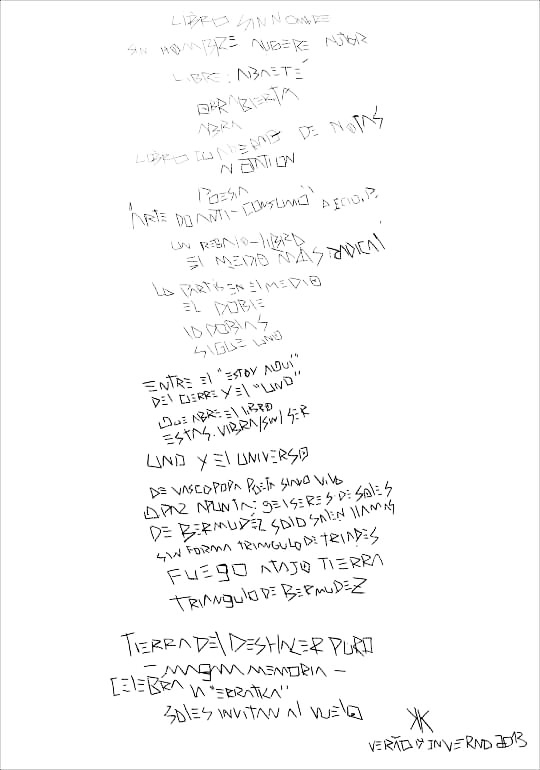 LIBRO SIN NOMBRE
SIN HOMBRE NUBERE AUTOR
LIBRE: ABAETÉ
OBRABIERTA
ABRA
LIBRO CUADERNO DE NOTAS
NOTATION
POESIA
"ARTE DO ANTI-CONSUMO"
UN REGALO-LIBRO
El MEDIO MÁS RADICAL
LO PARTIS EN El MEDIO
EL DOBlE
lO DOBlAS
SIGUE UNO
ENTRE El "ESTOY AQUI"
DEl CIERRE Y El "UNO"
QUE ABRE El lIBRO
ESTAS. VIBRA/SW/SER
UNO Y El UNIVERSO
DE VASCO POPA POETA SABIO VIVO
O. PAZ APUNTA: GEISERES DE SOLES
DE BERMUDÉZ SOLO SALEN llAMAS
SIN FORMA TRIANGULO DE TRIADES
FUEGO ATAJO TIERRA
TRIANGULO DE BERMUDEZ
TIERRA DEl DESHACER PURO
- MAGMA MEMORIA -
CElEBRA lA "ERRATICA"
SOlES INVITAN Al VUElO
VERÃO Y INVERNO 2013